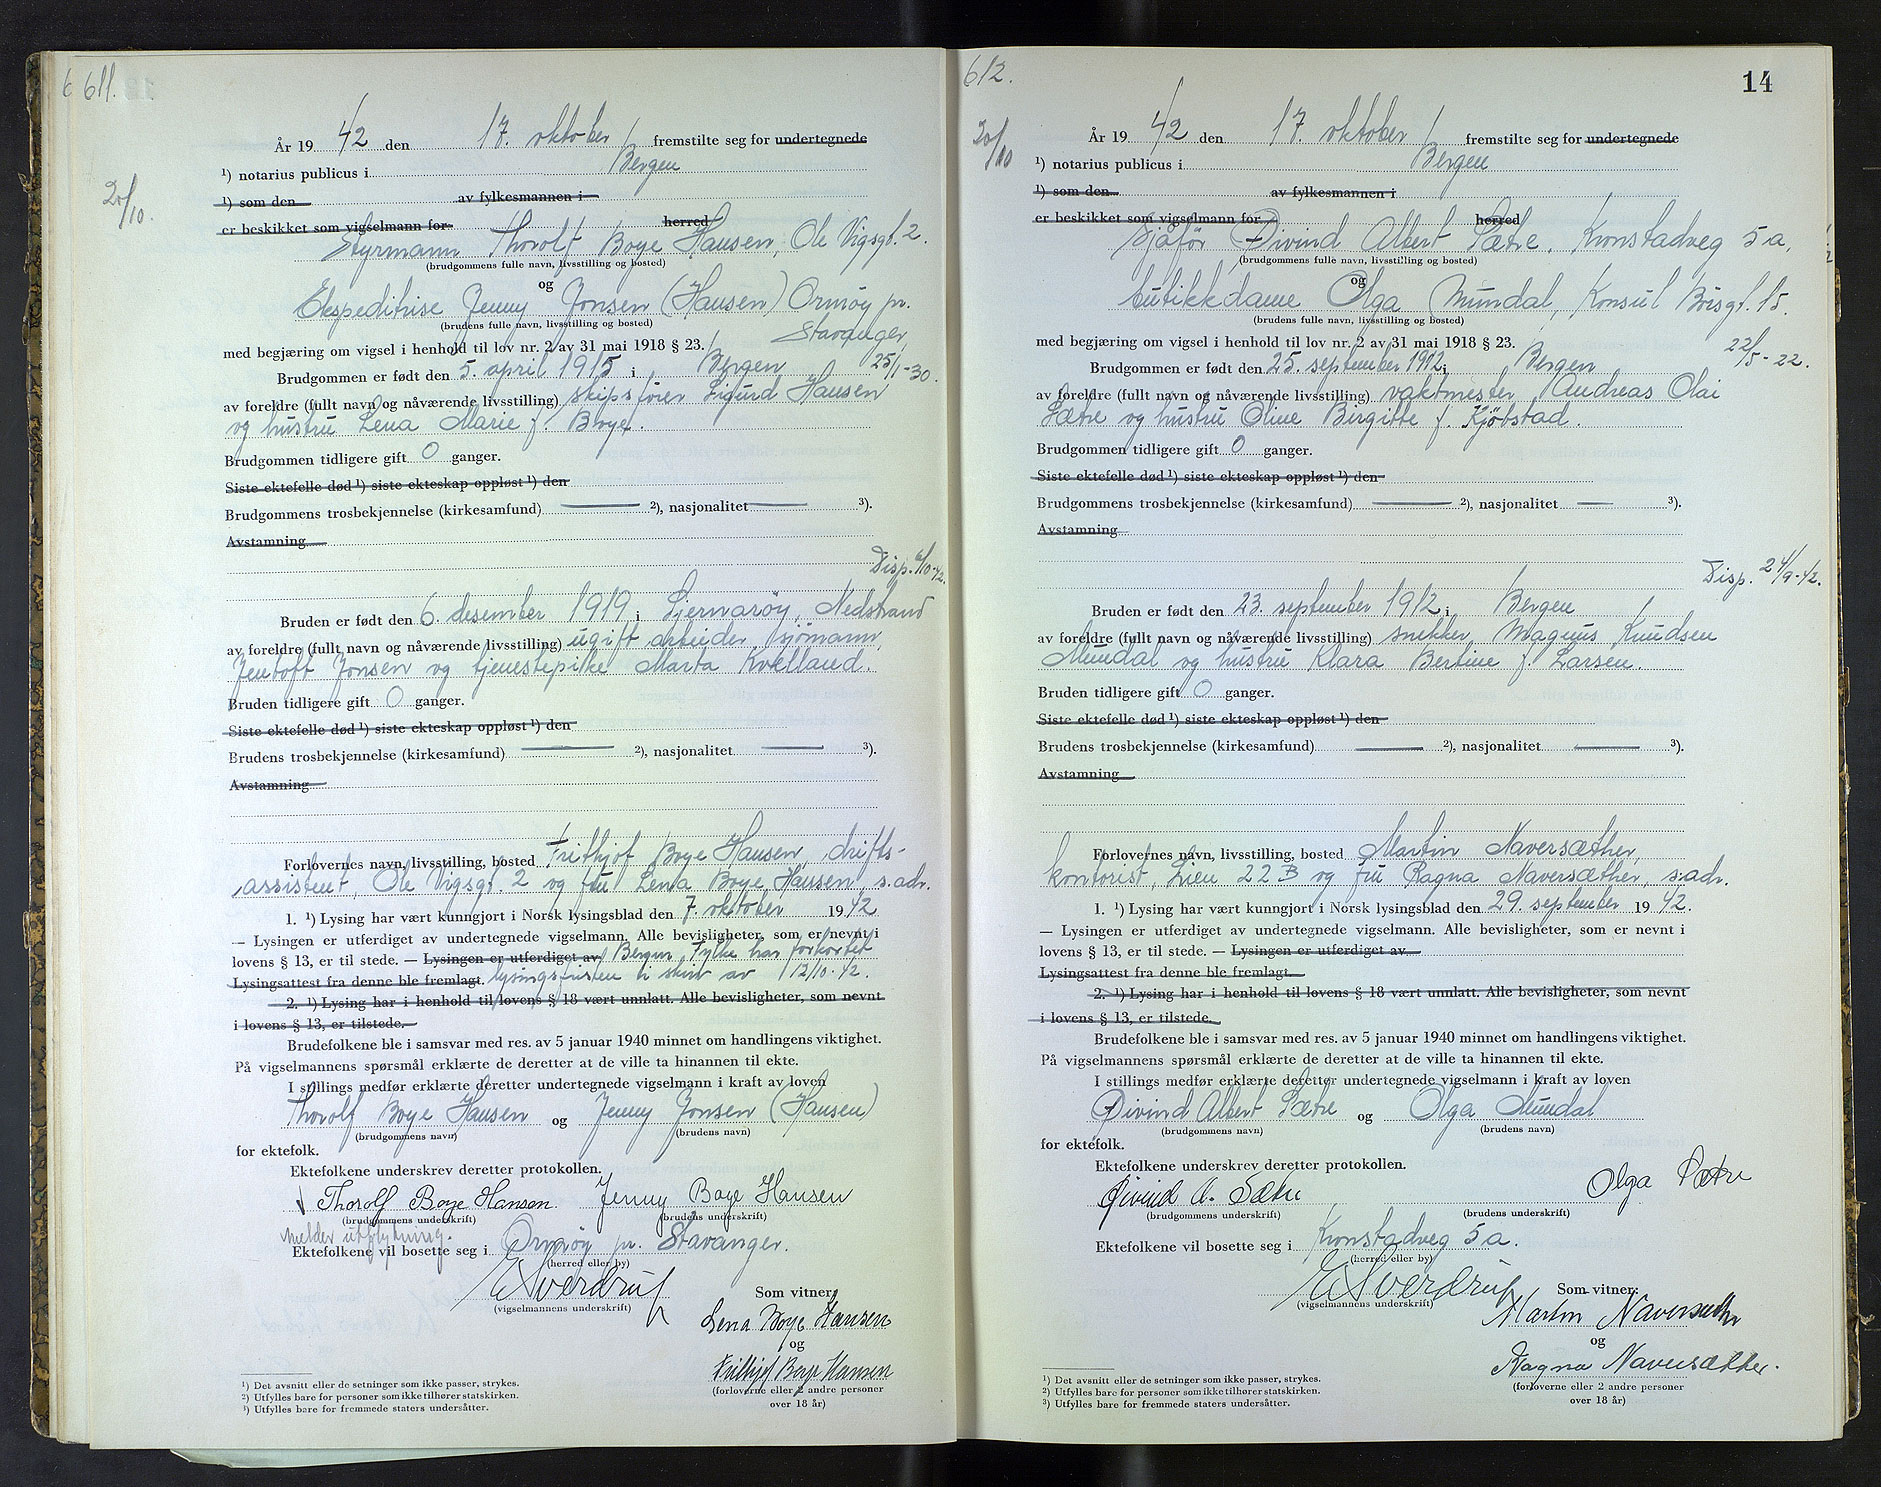 611.
År 19 42 den 17. oktober fremstilte seg for undertegnede
¹) notarius publicus i Bergen
20/10.
¹) som den av fylkesmannen i
er beskikket som vigselmann for herred
Styrmann Thorolf Boye Hansen, Ole Vigsgt. 2.
(brudgommens fulle navn, livsstilling og bosted)
og
Ekspeditrise Jenny Jonsen (Hansen) Ormøy pr.
(brudens fulle navn, livsstilling og bosted)
Stavanger
med begjæring om vigsel i henhold til lov nr. 2 av 31 mai 1918 § 23.
Brudgommen er født den 5. april 1915 i Bergen 25/1-30.
av foreldre (fullt navn og nåværende livsstilling) skipsfører Sigurd Hansen
og hustru Lena Marie f. Boye.
Brudgommen tidligere gift 0 ganger.
Siste ektefelle død ¹) siste ekteskap oppløst ¹) den
Brudgommens trosbekjennelse (kirkesamfund) ²), nasjonalitet ³).
Avstamning
Disp. 6/10-42.
Bruden er født den 6. desember 1919 i Sjernarøy, Nedstrand
av foreldre (fullt navn og nåværende livsstilling) ugift arbeider, sjømann,
Jentoft Jonsen og tjenestepike Marta Kvelland.
Bruden tidligere gift 0 ganger.
Siste ektefelle død ¹) siste ekteskap oppløst ¹) den
Brudens trosbekjennelse (kirkesamfund) ²), nasjonalitet ³).
Avstamning
Forlovernes navn, livsstilling, bosted Frithjof Boye Hansen, drifts-
assistent, Ole Vigsgt. 2 og fru Lena Boye Hansen, s.adr.
1. ¹) Lysing har vært kunngjort i Norsk lysingsblad den 7. oktober 1942
— Lysingen er utferdiget av undertegnede vigselmann. Alle bevisligheter, som er nevnt i
lovens § 13, er til stede. — Lysingen er utferdiget av Bergen Fylke har forkortet
Lysingsattest fra denne ble fremlagt. lysingsfristen i skriv av 12/10-42.
2. ¹) Lysing har i henhold til lovens § 18 vært unnlatt. Alle bevisligheter, som nevnt
i lovens § 13, er tilstede.
Brudefolkene ble i samsvar med res. av 5 januar 1940 minnet om handlingens viktighet.
På vigselmannens spørsmål erklærte de deretter at de ville ta hinannen til ekte.
I stillings medfør erklærte deretter undertegnede vigselmann i kraft av loven
Thorolf Boye Hansen og Jenny Jonsen (Hansen)
(brudgommens navn) (brudens navn)
for ektefolk.
Ektefolkene underskrev deretter protokollen.
Thorolf Boye Hansen. Jenny Boye Hansen
(brudgommens underskrift) (brudens underskrift)
melder utflytning.
Ektefolkene vil bosette seg i Ormøy pr. Stavanger.
(herred eller by)
E Sverdrup
(vigselmannens underskrift)
Som vitner:
Lena Boye Hansen
og
Frithjof Boye Hansen
(forloverne eller 2 andre personer
over 18 år)
¹) Det avsnitt eller de setninger som ikke passer, strykes.
²) Utfylles bare for personer som ikke tilhører statskirken.
³) Utfylles bare for fremmede staters undersåtter.
612.
14
År 19 42 den 17. oktober fremstilte seg for undertegnede
20/10
¹) notarius publicus i Bergen
¹) som den av fylkesmannen i
er beskikket som vigselmann for herred
Sjåfør Øivind Albert Sætre, Kronstadveg 5a,
(brudgommens fulle navn, livsstilling og bosted)
og
butikkdame Olga Mundal, Konsul Børsgt. 15.
(brudens fulle navn, livsstilling og bosted)
med begjæring om vigsel i henhold til lov nr. 2 av 31 mai 1918 § 23.
22/5-22.
Brudgommen er født den 25. september 1912 i Bergen
av foreldre (fullt navn og nåværende livsstilling) vaktmester Andreas Olai
Sætre og hustru Oline Birgitte f. Kjøbstad.
Brudgommen tidligere gift 0 ganger.
Siste ektefelle død ¹) siste ekteskap oppløst ¹) den
Brudgommens trosbekjennelse (kirkesamfund) ²), nasjonalitet ³).
Avstamning
Disp. 24/9-42.
Bruden er født den 23. september 1912 i Bergen
av foreldre (fullt navn og nåværende livsstilling) snekker, Magnus Knudsen
Mundal og hustru Klara Bertine f. Larsen.
Bruden tidligere gift 0 ganger.
Siste ektefelle død ¹) siste ekteskap oppløst ¹) den
Brudens trosbekjennelse (kirkesamfund) ²), nasjonalitet ³).
Avstamning
Forlovernes navn, livsstilling, bosted Martin Naversæther,
kontorist, Lien 22 B og fru Ragna Naversæther, s.adr.
1. ¹) Lysing har vært kunngjort i Norsk lysingsblad den 29. september 1942.
— Lysingen er utferdiget av undertegnede vigselmann. Alle bevisligheter, som er nevnt i
lovens § 13, er til stede. — Lysingen er utferdiget av
Lysingsattest fra denne ble fremlagt.
2. ¹) Lysing har i henhold til lovens § 18 vært unnlatt. Alle bevisligheter, som nevnt
i lovens § 13, er tilstede.
Brudefolkene ble i samsvar med res. av 5 januar 1940 minnet om handlingens viktighet.
På vigselmannens spørsmål erklærte de deretter at de ville ta hinannen til ekte.
I stillings medfør erklærte deretter undertegnede vigselmann i kraft av loven
Øivind Albert Sætre og Olga Mundal
(brudgommens navn) (brudens navn)
for ektefolk.
Ektefolkene underskrev deretter protokollen.
Øivind A. Sætre Olga Sætre
(brudgommens underskrift) (brudens underskrift)
Ektefolkene vil bosette seg i Kronstadveg 5a.
(herred eller by)
E Sverdrup
(vigselmannens underskrift)
Som vitner:
Martin Naversæther
og
Ragna Naversæther.
(forloverne eller 2 andre personer
over 18 år)
¹) Det avsnitt eller de setninger som ikke passer, strykes.
²) Utfylles bare for personer som ikke tilhører statskirken.
³) Utfylles bare for fremmede staters undersåtter.